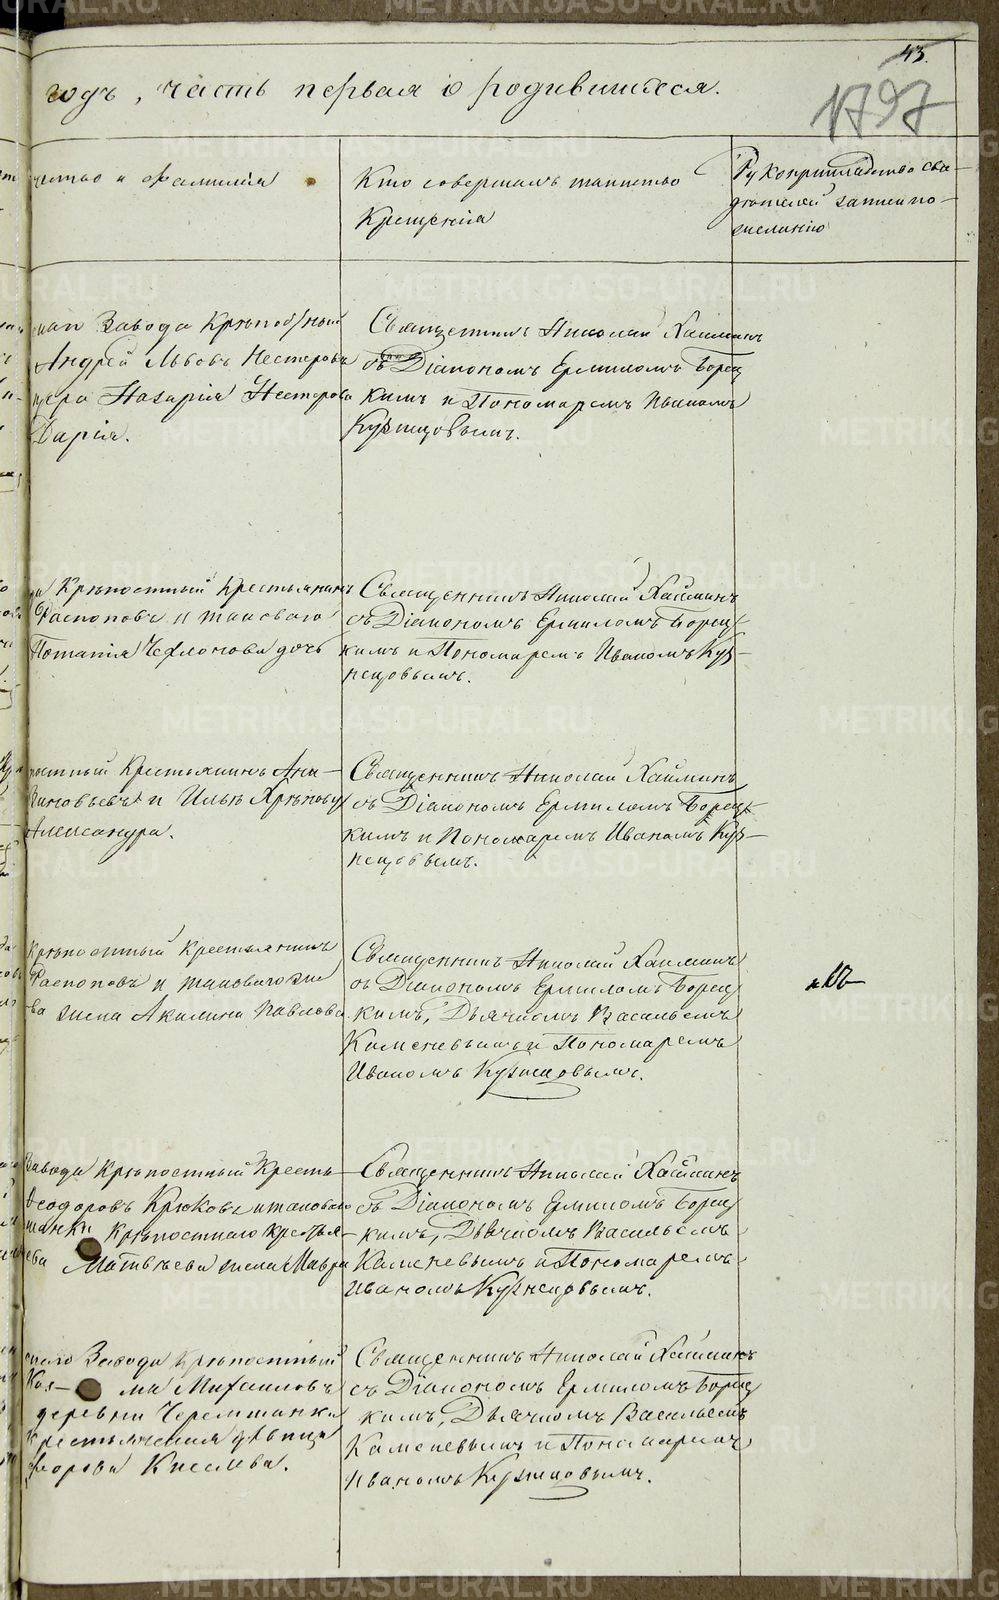 43.
годъ, часть первая о родившихся.
1797
чество и фамилія
Кто совершалъ таинство
Крещенія
Рукоприкладство сви-
дѣтелей записи по
желанію
Завода Крѣпостный
Андрей Львовъ Нестеровъ
Назарія Нестерова
Дарія.
Священникъ Николай Хаймин
съ Діакономъ Ермиломъ Борец
кимъ и Пономаремъ Иваномъ
Кузнецовымъ.
Крѣпостный Крестьянинъ
Распоповъ и таковаго
Потапія дочь
Священникъ Николай Хайминъ
съ Діакономъ Ермиломъ Борец
кимъ и Пономаремъ Иваномъ Куз-
нецовымъ.
постный Крестьянинъ
Зиновьевъ и Илья
Александра.
Священникъ Николай Хайминъ
съ Діакономъ Ермиломъ Борец
кимъ и Пономаремъ Иваномъ Куз-
нецовымъ.
Крѣпостный Крестьянинъ
Распоповъ и таковаго же
ва жена Акилина Павлова
Священникъ Николай Хайминъ
съ Діакономъ Ермиломъ Борец
кимъ, Дьячкомъ Васильемъ
Каменевымъ и Пономаремъ
Иваномъ Кузнецовымъ.
Завода Крѣпостный Кресть-
Ѳеодоровъ Крюковъ и таковаго
шанки Крѣпостнаго крестья-
ева Матвѣева жена Мавра
Священникъ Николай Хайминъ
съ Діакономъ Ермиломъ Борец
кимъ, Дьячкомъ Васильемъ
Каменевымъ и Пономаремъ
Иваномъ Кузнецовымъ.
скаго Завода Крѣпостный
Коз- ма Михаиловъ
деревни Черемшанки
крестьянская дѣвица
Киселева.
Священникъ Николай Хайминъ
съ Діакономъ Ермиломъ Борец
кимъ, Дьячкомъ Васильемъ
Каменевымъ и Пономаремъ
Иваномъ Кузнецовымъ.
METRIKI.GASO-URAL.RU